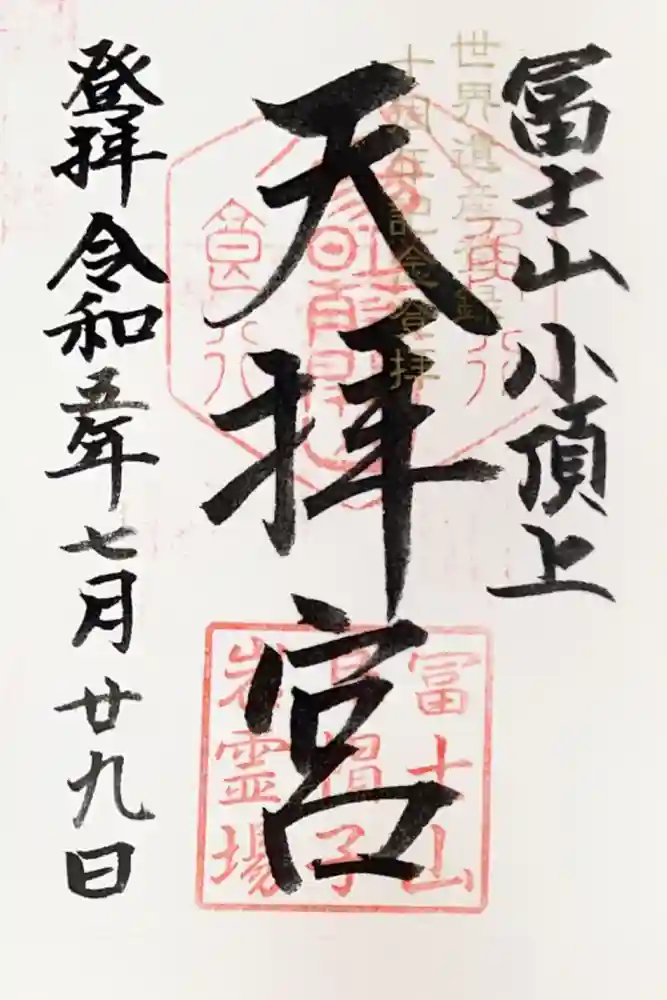 冨士山小頂上
世界遺産登録
十周年記念登拝
天拝宮
冨士山
烏帽子
岩霊場
登拝 令和五年七月廿九日